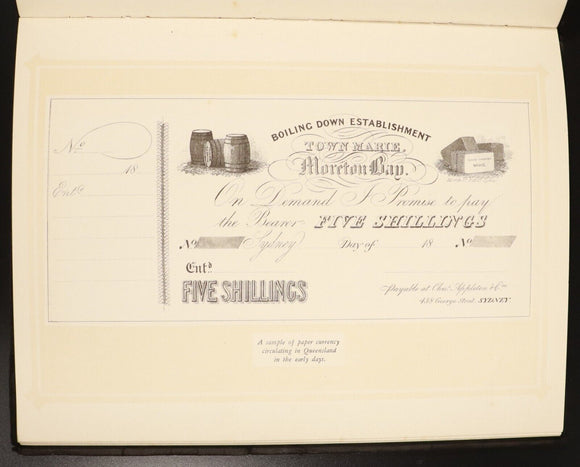 No
18
Entd
BOILING DOWN ESTABLISHMENT
TOWN MARIE.
Moreton Bay.
On Demand I Promise to pay
the Bearer FIVE SHILLINGS
No Sydney Day of 18 No
Entd
FIVE SHILLINGS
Payable at Chas. Appleton & Co
488 George Street, SYDNEY
A sample of paper currency
circulating in Queensland
in the early days.